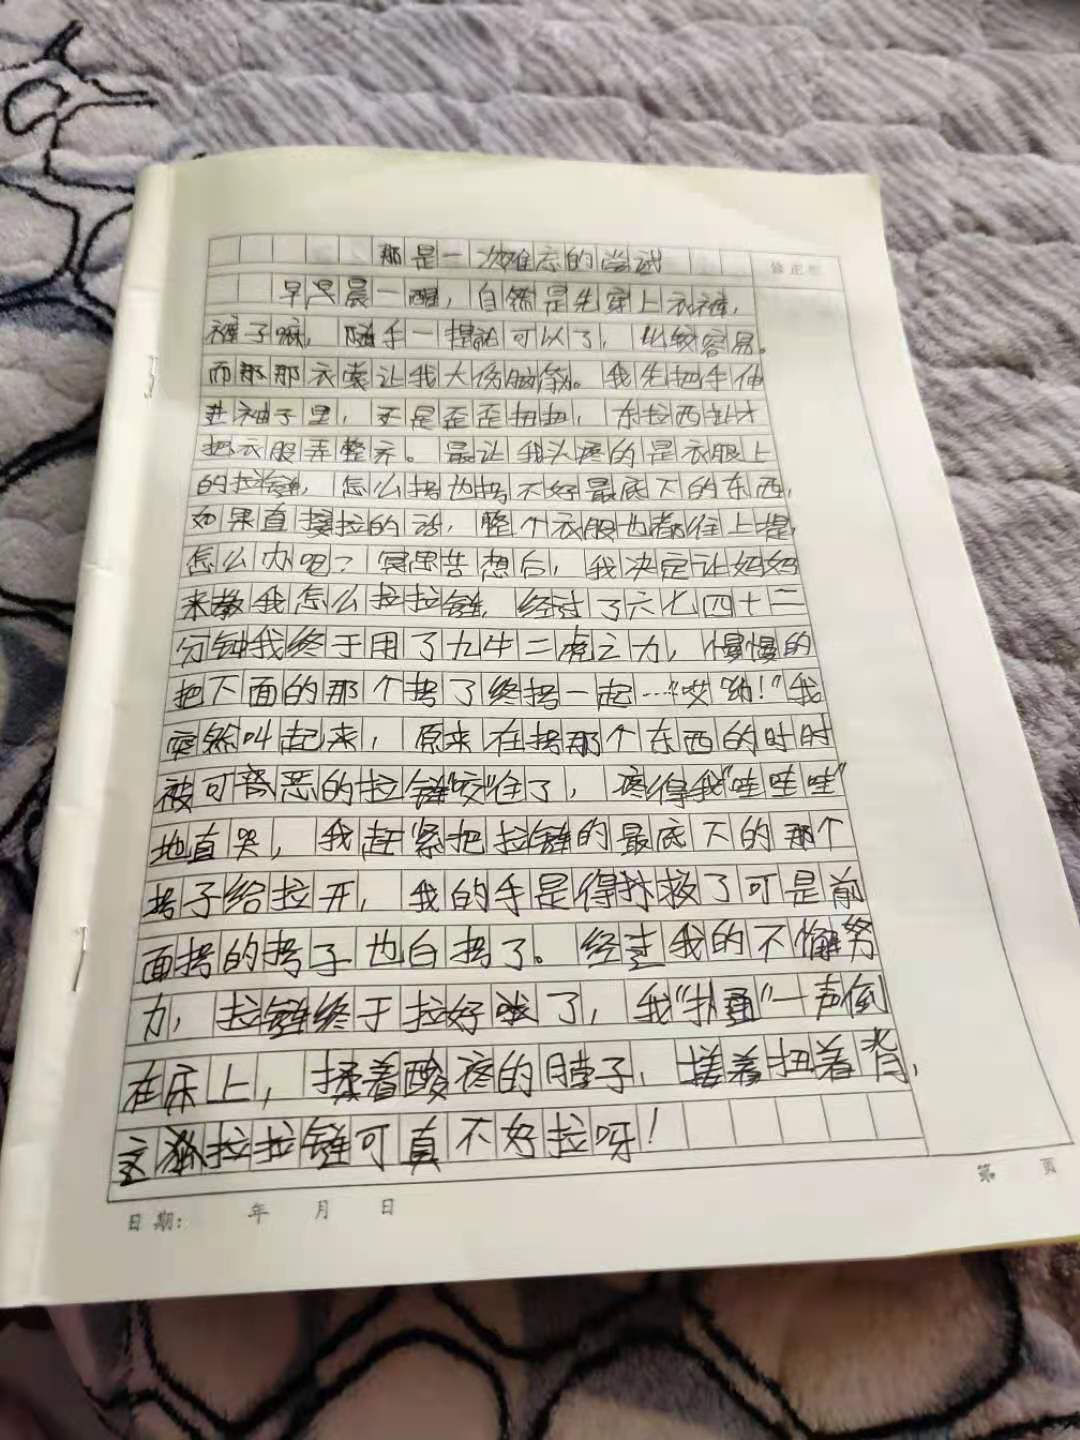 那是一次难忘的尝试
修正栏
早早晨一醒，自然是先穿上衣裤，
裤子嘛，随手一提就可以了，比较容易。
而那那衣裳让我大伤脑筋。我先把手伸
进袖子里，还是歪歪扭扭，东拉西扯才
把衣服弄整齐。最让我头疼的是衣服上
的拉链，怎么拷也拷不好最底下的东西，
如果直接拉的话，整个衣服也都往上提，
怎么办呢？冥思苦想后，我决定让妈妈
来教我怎么拉拉链，经过了六七四十二
分钟我终于用了九牛二虎之力，慢慢的
把下面的那个拷了终拷一起…“哎哟！”我
突然叫起来，原来在拷那个东西的时时
被可恶的拉链“咬”住了，疼得我“哇哇哇”
地直哭，我赶紧把拉链的最底下的那个
拷子给拉开，我的手是得拯救了可是前
面拷的拷子也白拷了。经过我的不懈努
力，拉链终于拉好了，我“扑通”一声倒
在床上，揉着酸疼的脖子，搓着扭着背，
这拉拉链可真不好拉呀！
日期： 年 月 日
第 页